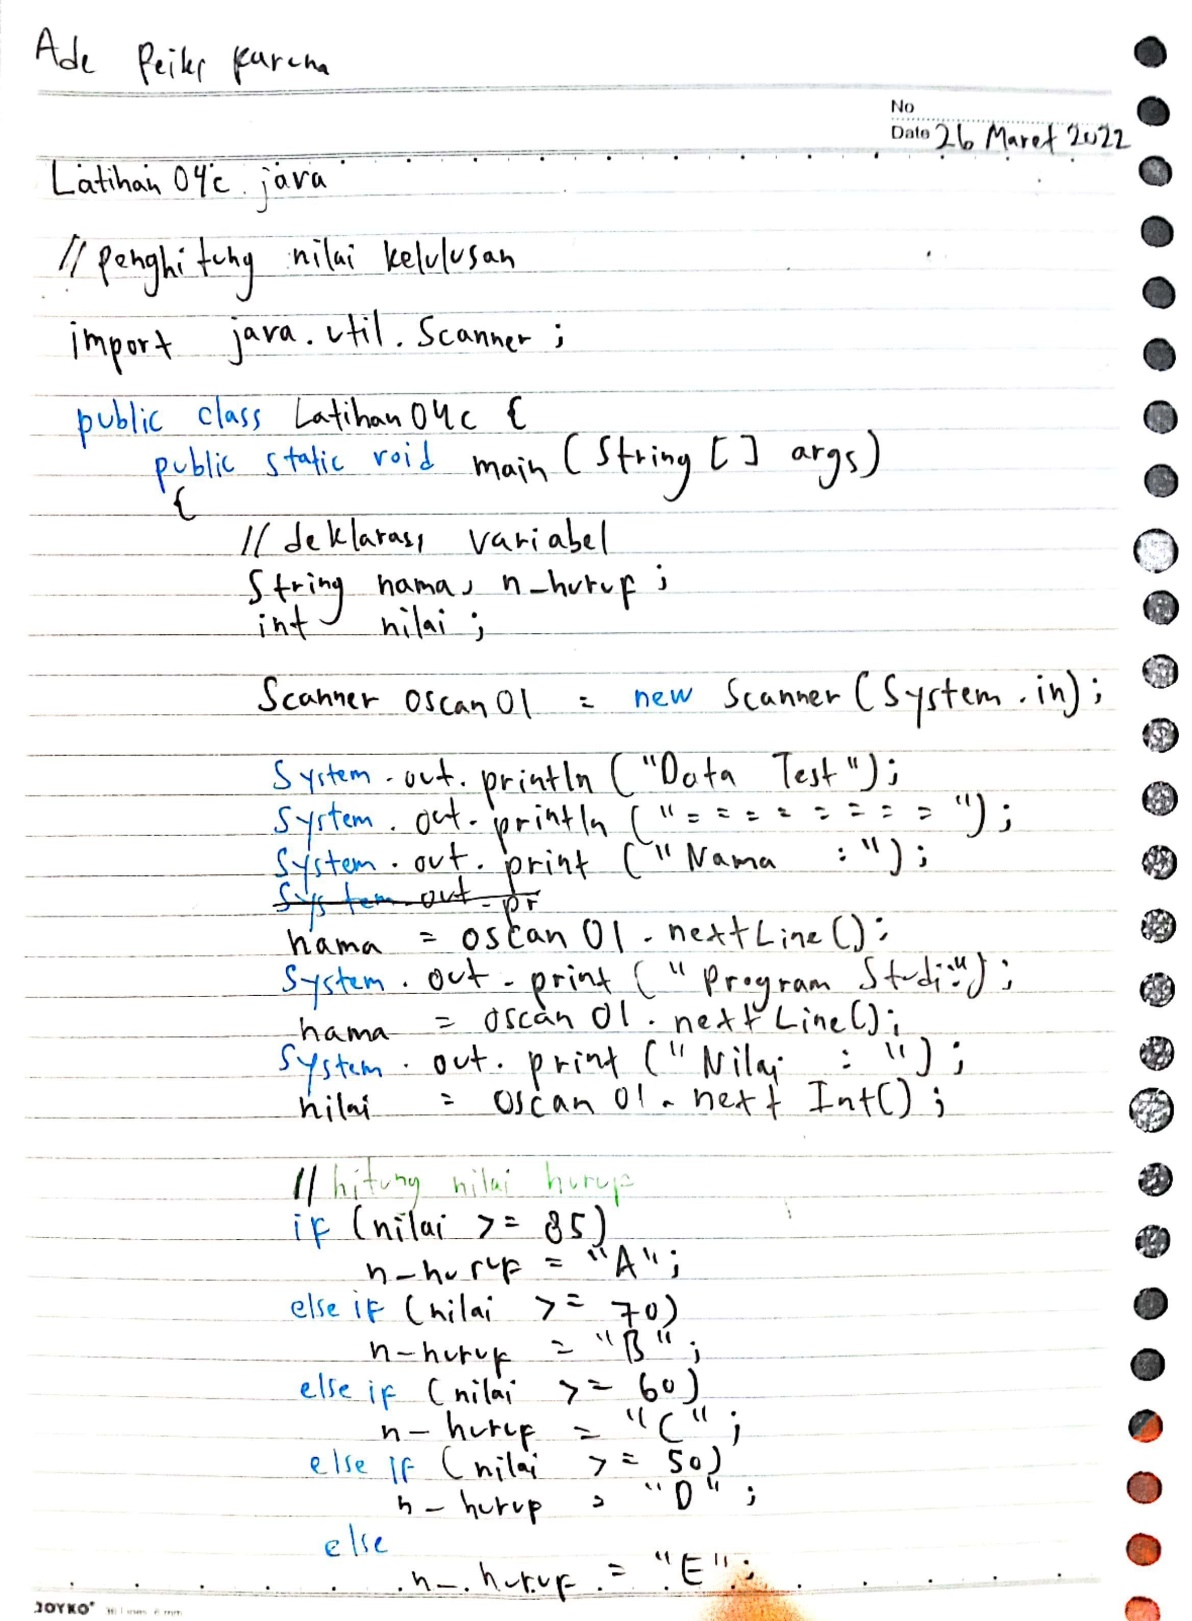 Ade Peiks Purcna
No
Date 26 Maret 2022
Latihan 04c. java
// Penghitung nilai kelulusan
import java.util.Scanner;
public class Latihan 04c {
public static void main (String [] args)
{
// deklarasi variabel
String nama, n_huruf;
int nilai;
Scanner oscan 01 = new Scanner (System.in);
System.out.println ("Data Test");
System.out.println ("========");
System.out.print ("Nama :");
System.out.pr
nama = oscan 01.nextLine();
System.out.print ("Program Studi:");
nama = oscan 01.nextLine();
System.out.print ("Nilai : ");
nilai = oscan 01.next Int();
// hitung nilai huruf
if (nilai >= 85)
n_huruf = "A";
else if (nilai >= 70)
n_huruf = "B";
else if (nilai >= 60)
n_huruf = "C";
else if (nilai >= 50)
n_huruf = "D";
else
n_huruf = "E";
JOYKO